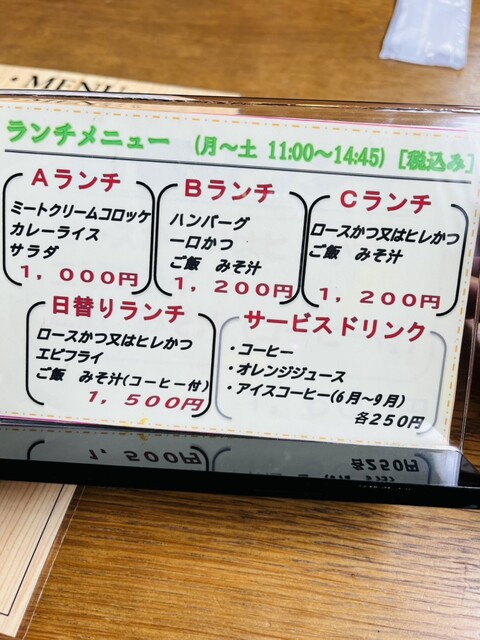 ・MENU
ランチメニュー (月～土 11:00～14:45) [税込み]
Aランチ
ミートクリームコロッケ
カレーライス
サラダ
1,000円
Bランチ
ハンバーグ
一口かつ
ご飯 みそ汁
1,200円
Cランチ
ロースかつ又はヒレかつ
ご飯 みそ汁
1,200円
日替りランチ
ロースかつ又はヒレかつ
エビフライ
ご飯 みそ汁(コーヒー付)
1,500円
サービスドリンク
・コーヒー
・オレンジジュース
・アイスコーヒー(6月～9月)
各250円